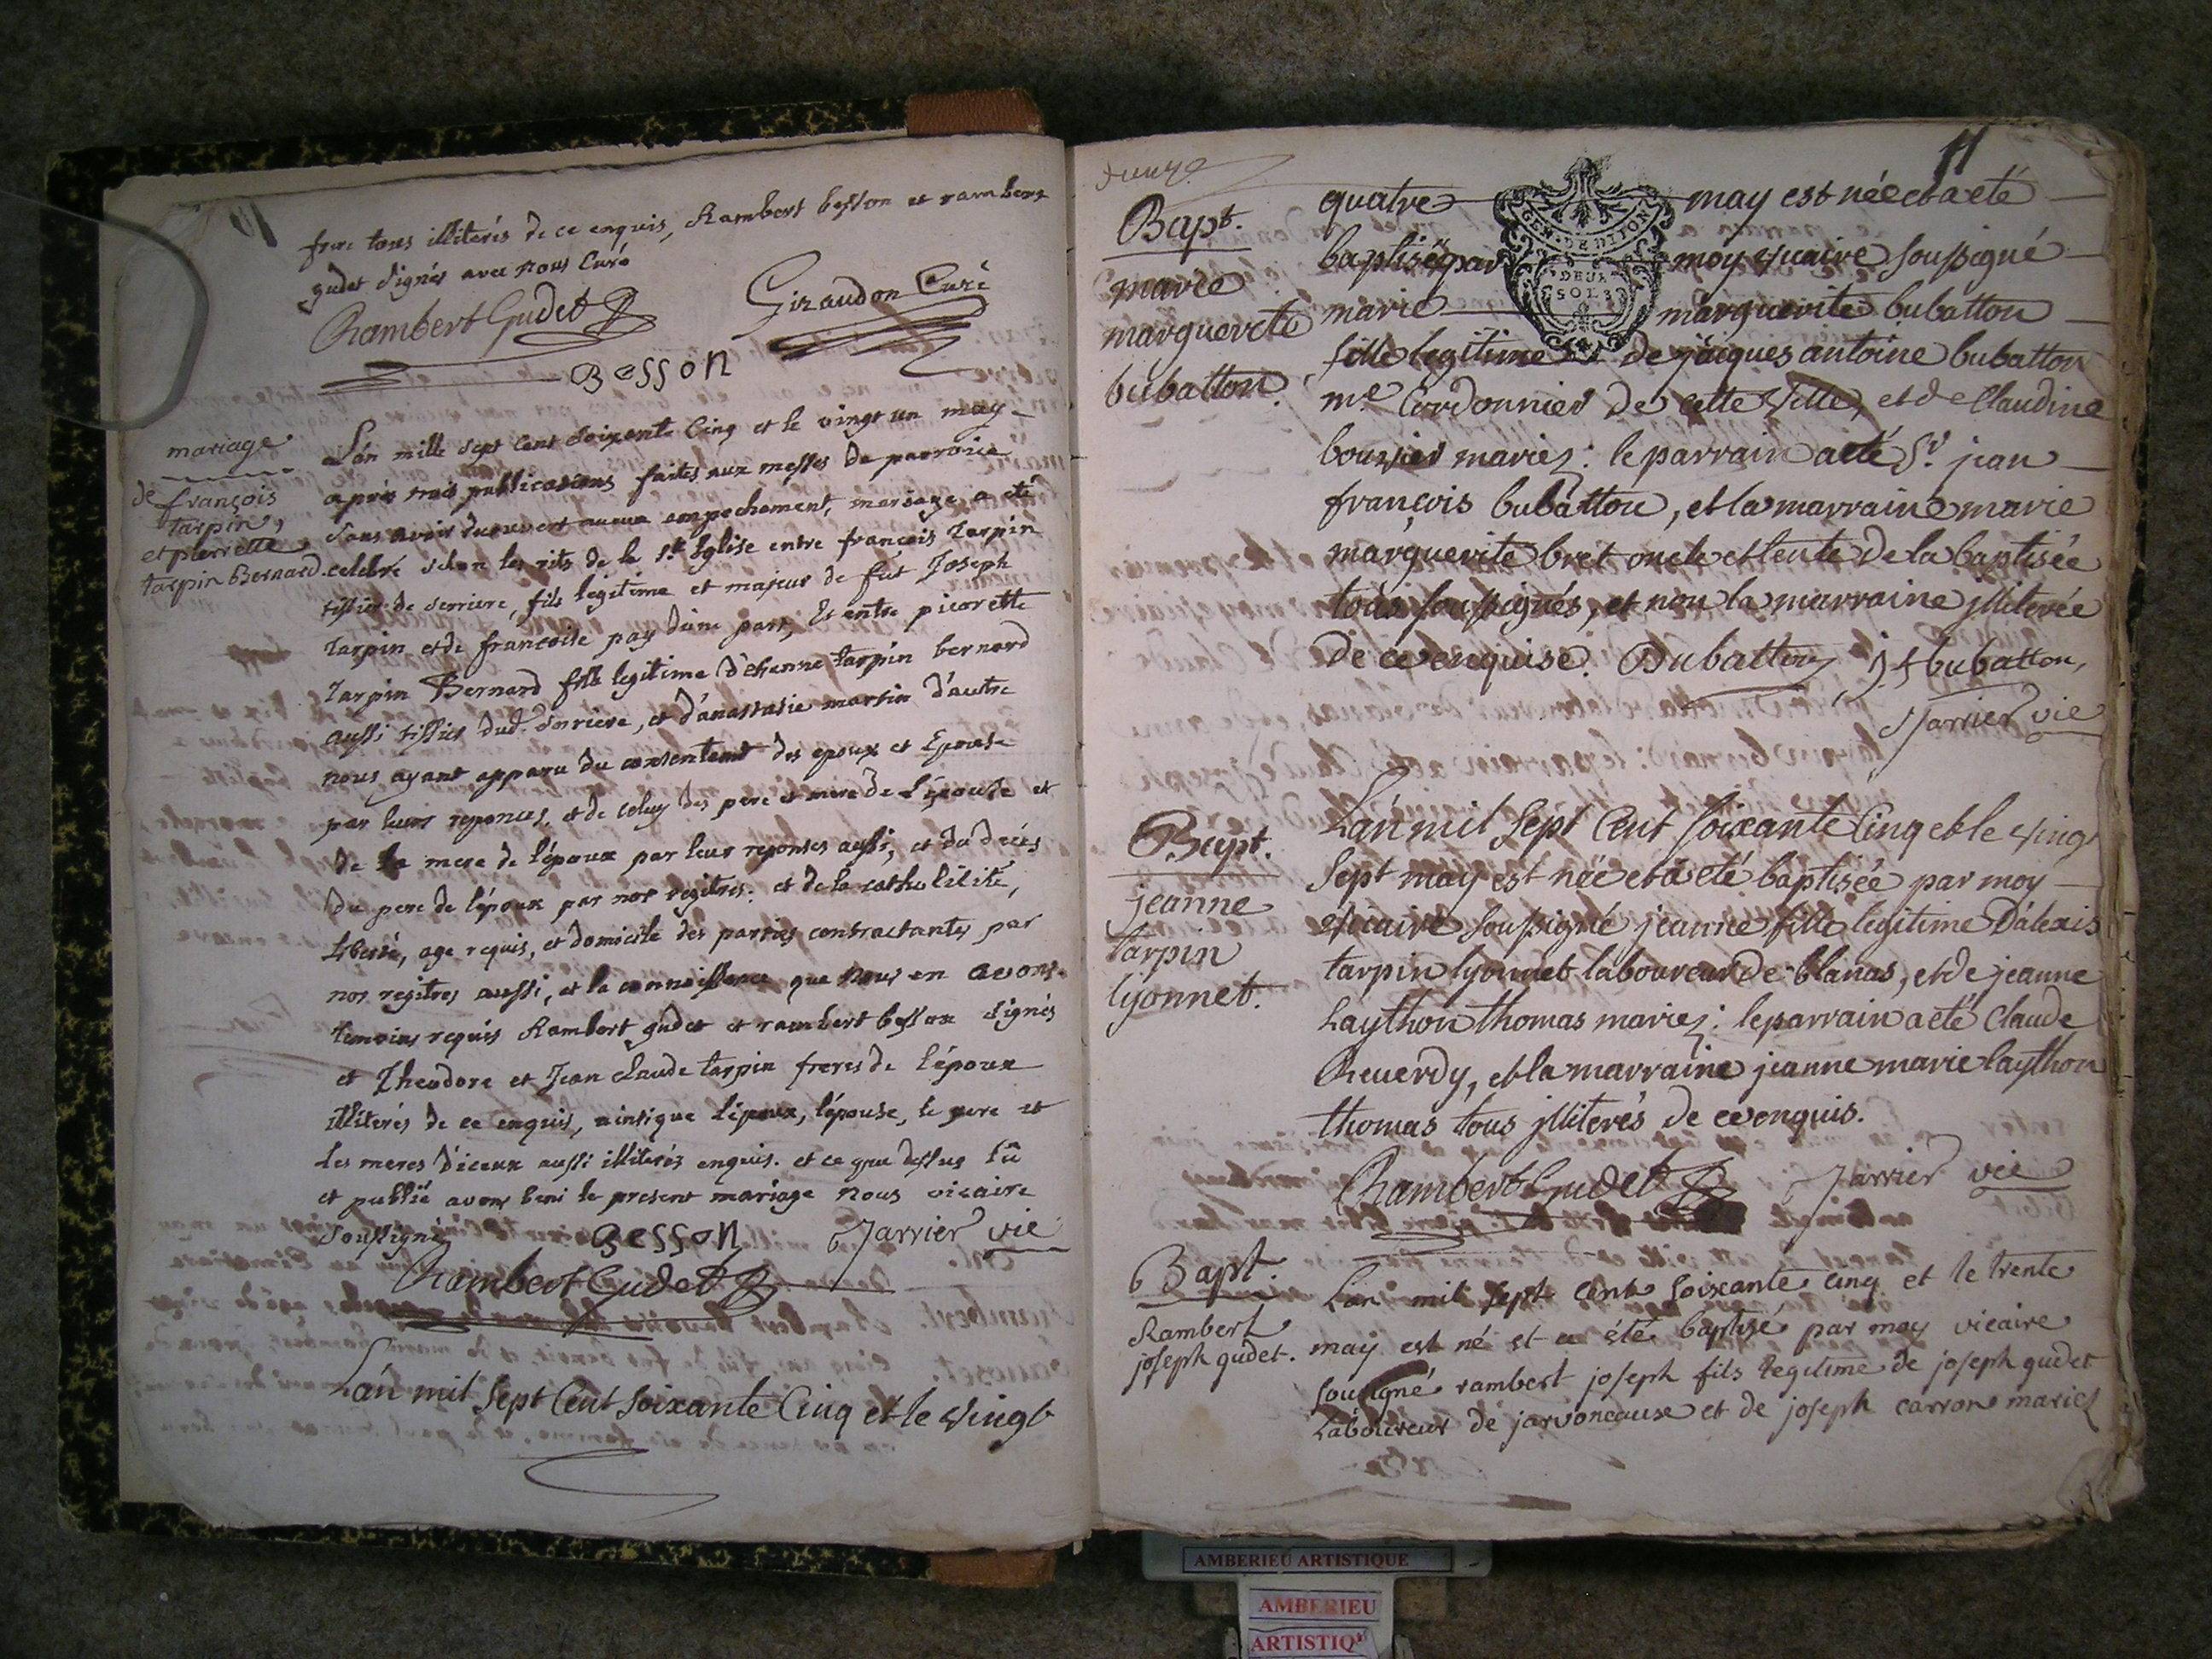 frere tous illiterés de ce enquis, Rambert besson et rambert
gudet signés avec nous Curé
Rambert Gudet
Giraudon Curé
BESSON
mariage
de françois
tarpin,
et pierrette
tarpin Bernard.
L'an mille sept cent soixante Cinq et le vingt un may
après trois publications faites aux messes de parroice
sans avoir decouvert aucun empechement, mariage a eté
celebré selon les rits de la Ste Eglise entre francois Tarpin
tissier de serriere, fils legitime et majeur de fût Joseph
Tarpin et de francoise pay d'une part, Et entre pierrette
Tarpin Bernard fille legitime d'etienne tarpin bernard
aussi tissier dud. serriere, et d'anastasie martin d'autre
nous ayant apparu du consentemt des epoux et Epouse
par leurs reponces, et de celuy des pere et mere de l'épouse et
de la mere de l'époux par leur reponses aussi, et du décès
du pere de l'époux par nos regitres. et de la catholicité,
liberté, age requis, et domicile des parties contractantes par
nos regitres aussi, et la connoissance que nous en avons.
temoins requis Rambert gudet et rambert besson signés
et Theodore et Jean claude tarpin freres de l'époux
illiterés de ce enquis, ainsique l'époux, l'épouse, le pere et
les meres d'iceux aussi illiterés enquis. et ce que dessus lû
et publié avons beni le present mariage nous vicaire
soussigné
BESSON
Jarrier vic
Rambert Gudet
L'an mil Sept Cent soixante Cinq et le vingt
11
GEN. DE DIJON
DEUX
SOLS
Bapt.
marie
marguerete
bubatton.
quatre may est née et a eté
baptisée par moy vicaire soussigné
marie marguerite bubatton
fille legitime de jacques antoine bubatton
me Cordonnier de cette ville, et de Claudine
bouvier mariez: le parrain a eté Sr. jean
françois bubatton, et la marraine marie
marguerite bret oncle et tente de la baptisée
tous soussignés, et non la marraine jlliterée
de ce enquise. Dubatton j f bubatton,
Jarrier vic
Bapt.
jeanne
tarpin
lyonnet.
L'an mil Sept Cent soixante Cinq et le vingt
Sept may est née et a eté baptisée par moy
vicaire soussigné jeanne fille legitime D'alexis
tarpin lyonnet laboureur de blanas, et de jeanne
Laython thomas mariez: le parrain a eté Claude
Reverdy, et la marraine jeanne marie laython
thomas tous jlliterés de ce enquis.
Rambert Gudet
Jarrier vic
Bapt.
Rambert
joseph gudet.
L'an mil sept cent soixante cinq et le trente
may est né et a été baptisé par moy vicaire
sousigné rambert joseph fils legitime de joseph gudet
Laboureur de jarvonceaux et de joseph carron mariez
AMBERIEU ARTISTIQUE
AMBERIEU
ARTISTIQ